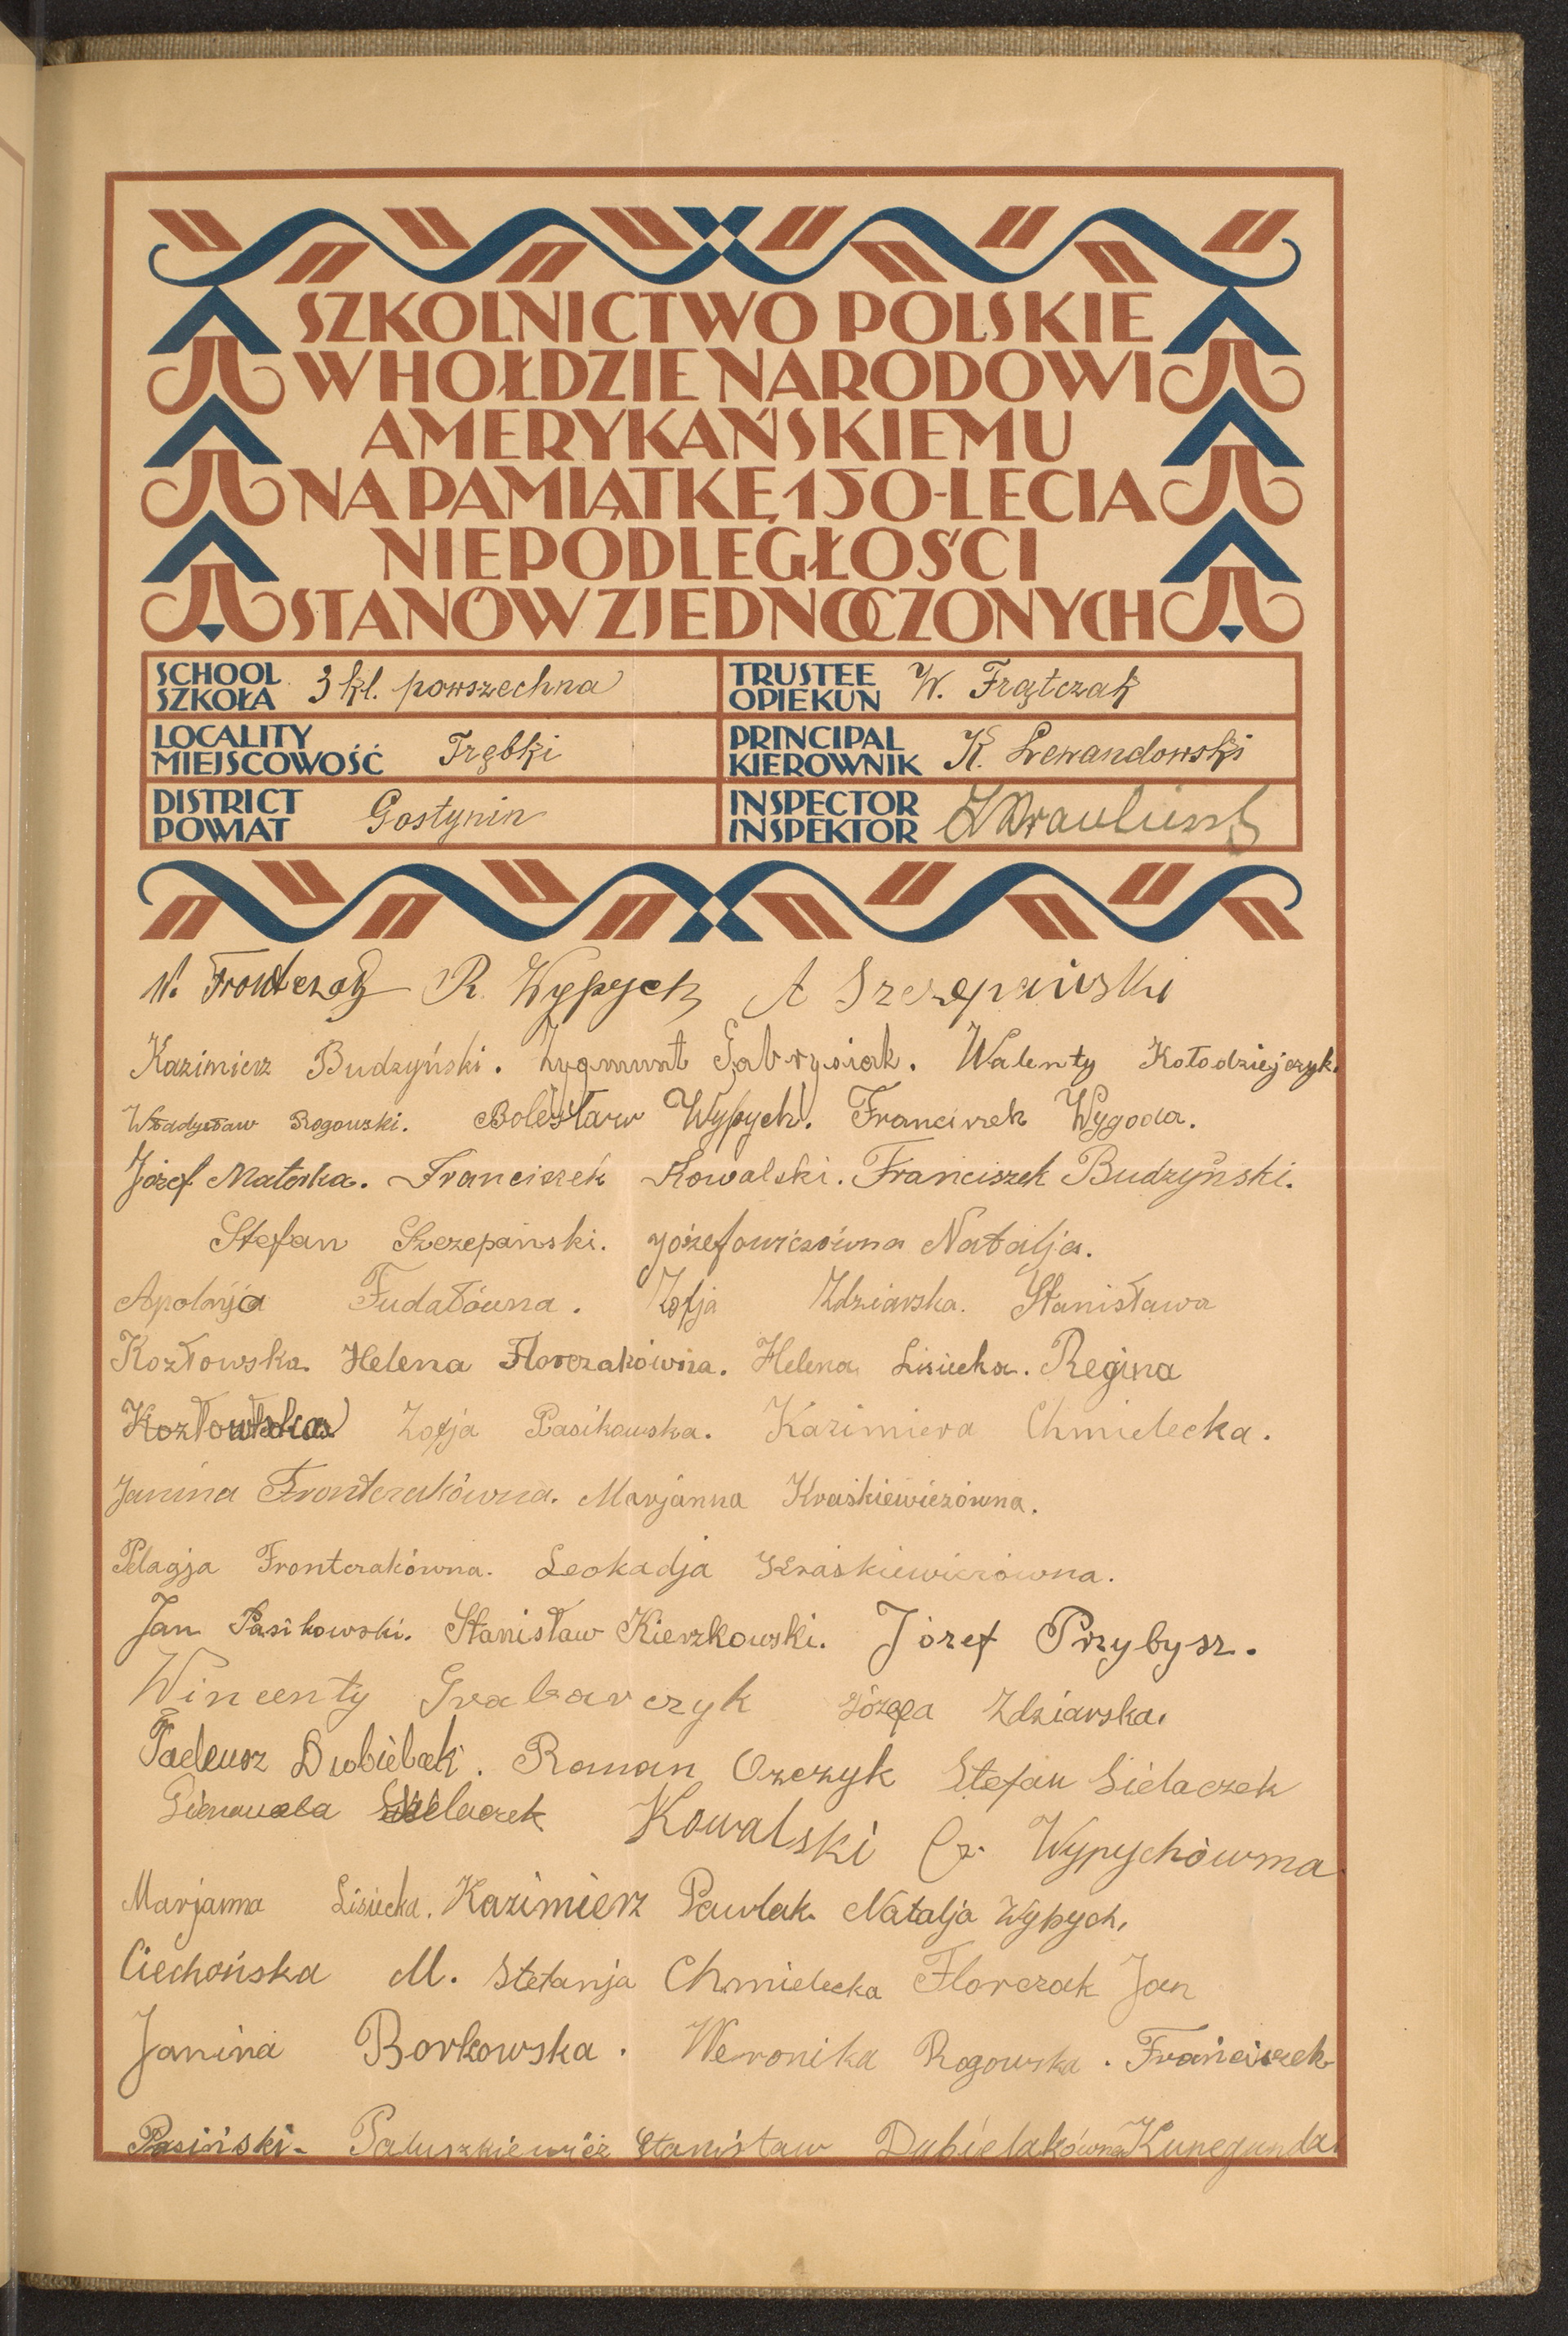 SZKOLNICTWO POLSKIE
W HOŁDZIE NARODOWI
AMERYKAŃSKIEMU
NA PAMIĄTKĘ 150-LECIA
NIEPODLEGŁOŚCI
STANÓW ZJEDNOCZONYCH
SCHOOL
SZKOŁA 3 kl. powszechna
TRUSTEE
OPIEKUN W. Frątczak
LOCALITY
MIEJSCOWOŚĆ Trębki
PRINCIPAL
KIEROWNIK K. Lewandowski
DISTRICT
POWIAT Gostynin
INSPECTOR
INSPEKTOR
W. Frontczak R. Wypych A Szczepański
Kazimierz Budzyński. Zygmunt Gabrysiak. Walenty Kołodziejczyk.
Władysław Rogowski. Bolesław Wypych. Franciszek Wygoda.
Józef Matoska. Franciszek Kowalski. Franciszek Budzyński.
Stefan Szczepański. Józefowiczówna Natalja.
Apolonja Fudałówna. Zofja Zdziarska. Stanisława
Kozłowska. Helena Florczakówna. Helena Lisiecka. Regina
Kozłowska Zofja Pasikowska. Kazimiera Chmielecka.
Janina Frontczakówna. Marjanna Kraśkiewiczówna.
Pelagja Frontczakówna. Leokadja Kraśkiewiczówna.
Jan Pasikowski. Stanisław Kierzkowski. Józef Przybysz.
Wincenty Grabarczyk Józefa Zdziarska.
Tadeusz Dubielak. Roman Ozczyk Stefan Sielaczek
Sielaczek Kowalski Cz. Wypychówna
Marjanna Lisiecka. Kazimierz Pawlak. Natalja Wypych,
Ciechońska M. Stefanja Chmielecka Florczak Jan
Janina Borkowska. Weronika Rogowska. Franciszek
Pasiński. Paluszkiewicz Stanisław Dubielakówna Kunegunda.